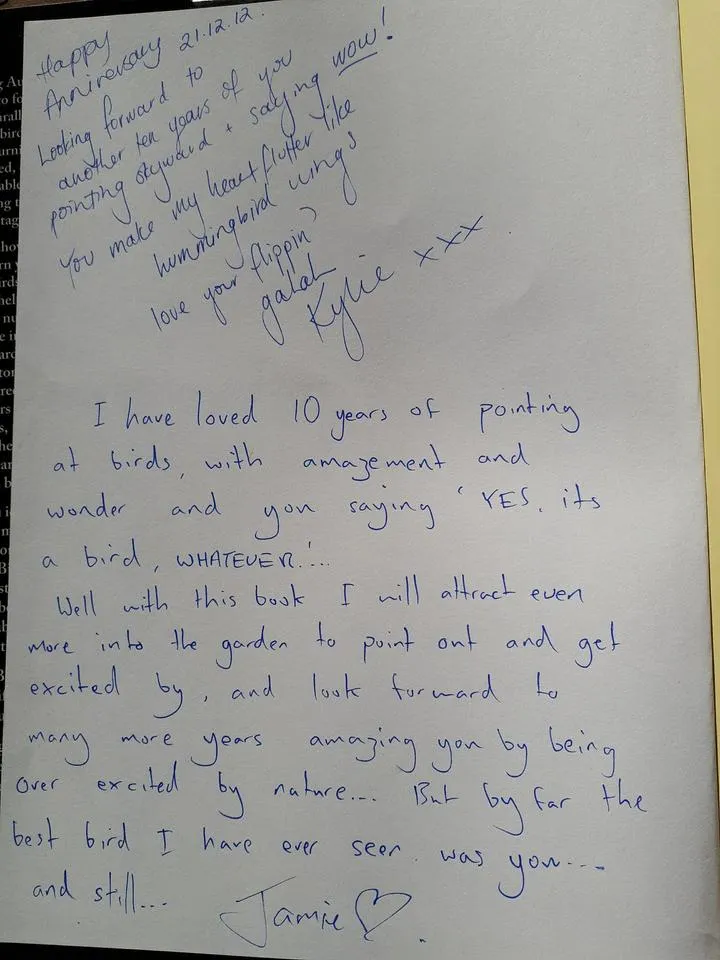 Happy
Anniversary 21.12.12.
Looking forward to
another ten years of you
pointing skyward + saying wow!
You make my heart flutter like
hummingbird wings
love your flippin'
galah
Kylie xxx
I have loved 10 years of pointing
at birds, with amazement and
wonder and you saying 'YES, its
a bird, WHATEVER!'...
Well with this book I will attract even
more into the garden to point out and get
excited by, and look forward to
many more years amazing you by being
over excited by nature... But by far the
best bird I have ever seen was you....
and still...
Jamie ♡.